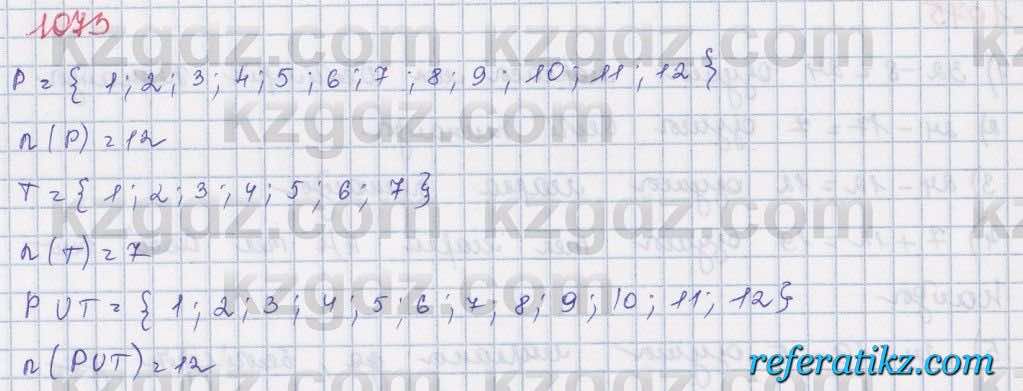 1073
P = { 1; 2; 3; 4; 5; 6; 7; 8; 9; 10; 11; 12 }
n (P) = 12
T = { 1; 2; 3; 4; 5; 6; 7 }
n (T) = 7
P U T = { 1; 2; 3; 4; 5; 6; 7; 8; 9; 10; 11; 12 }
n (P U T) = 12
kzgdz.com
referatikz.com